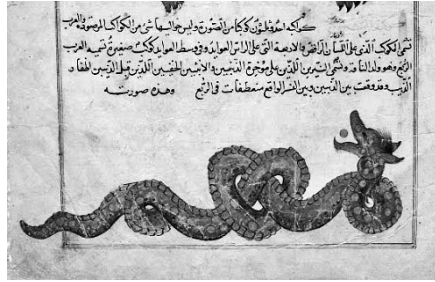 كواكبه احد وثلثون كوكبا من الصورة وليس حوالي الصورة شئ من الكواكب المرصودة والعرب
تسمى الكوكب الذى على اللسان الراقص والاربعة التى على الراس العوايد وفى وسط العوايد كوكب صغير تسميه العرب
الربع وهو ولد الناقة وتسمى النيرين اللذين على مؤخره الذيبين والاثنين الخفيين اللذين قبل الذيبين اظفار
الذيب وقد وقعت بين الذيبين وبين النسر الواقع منعطفات فى الربع وهذه صورته